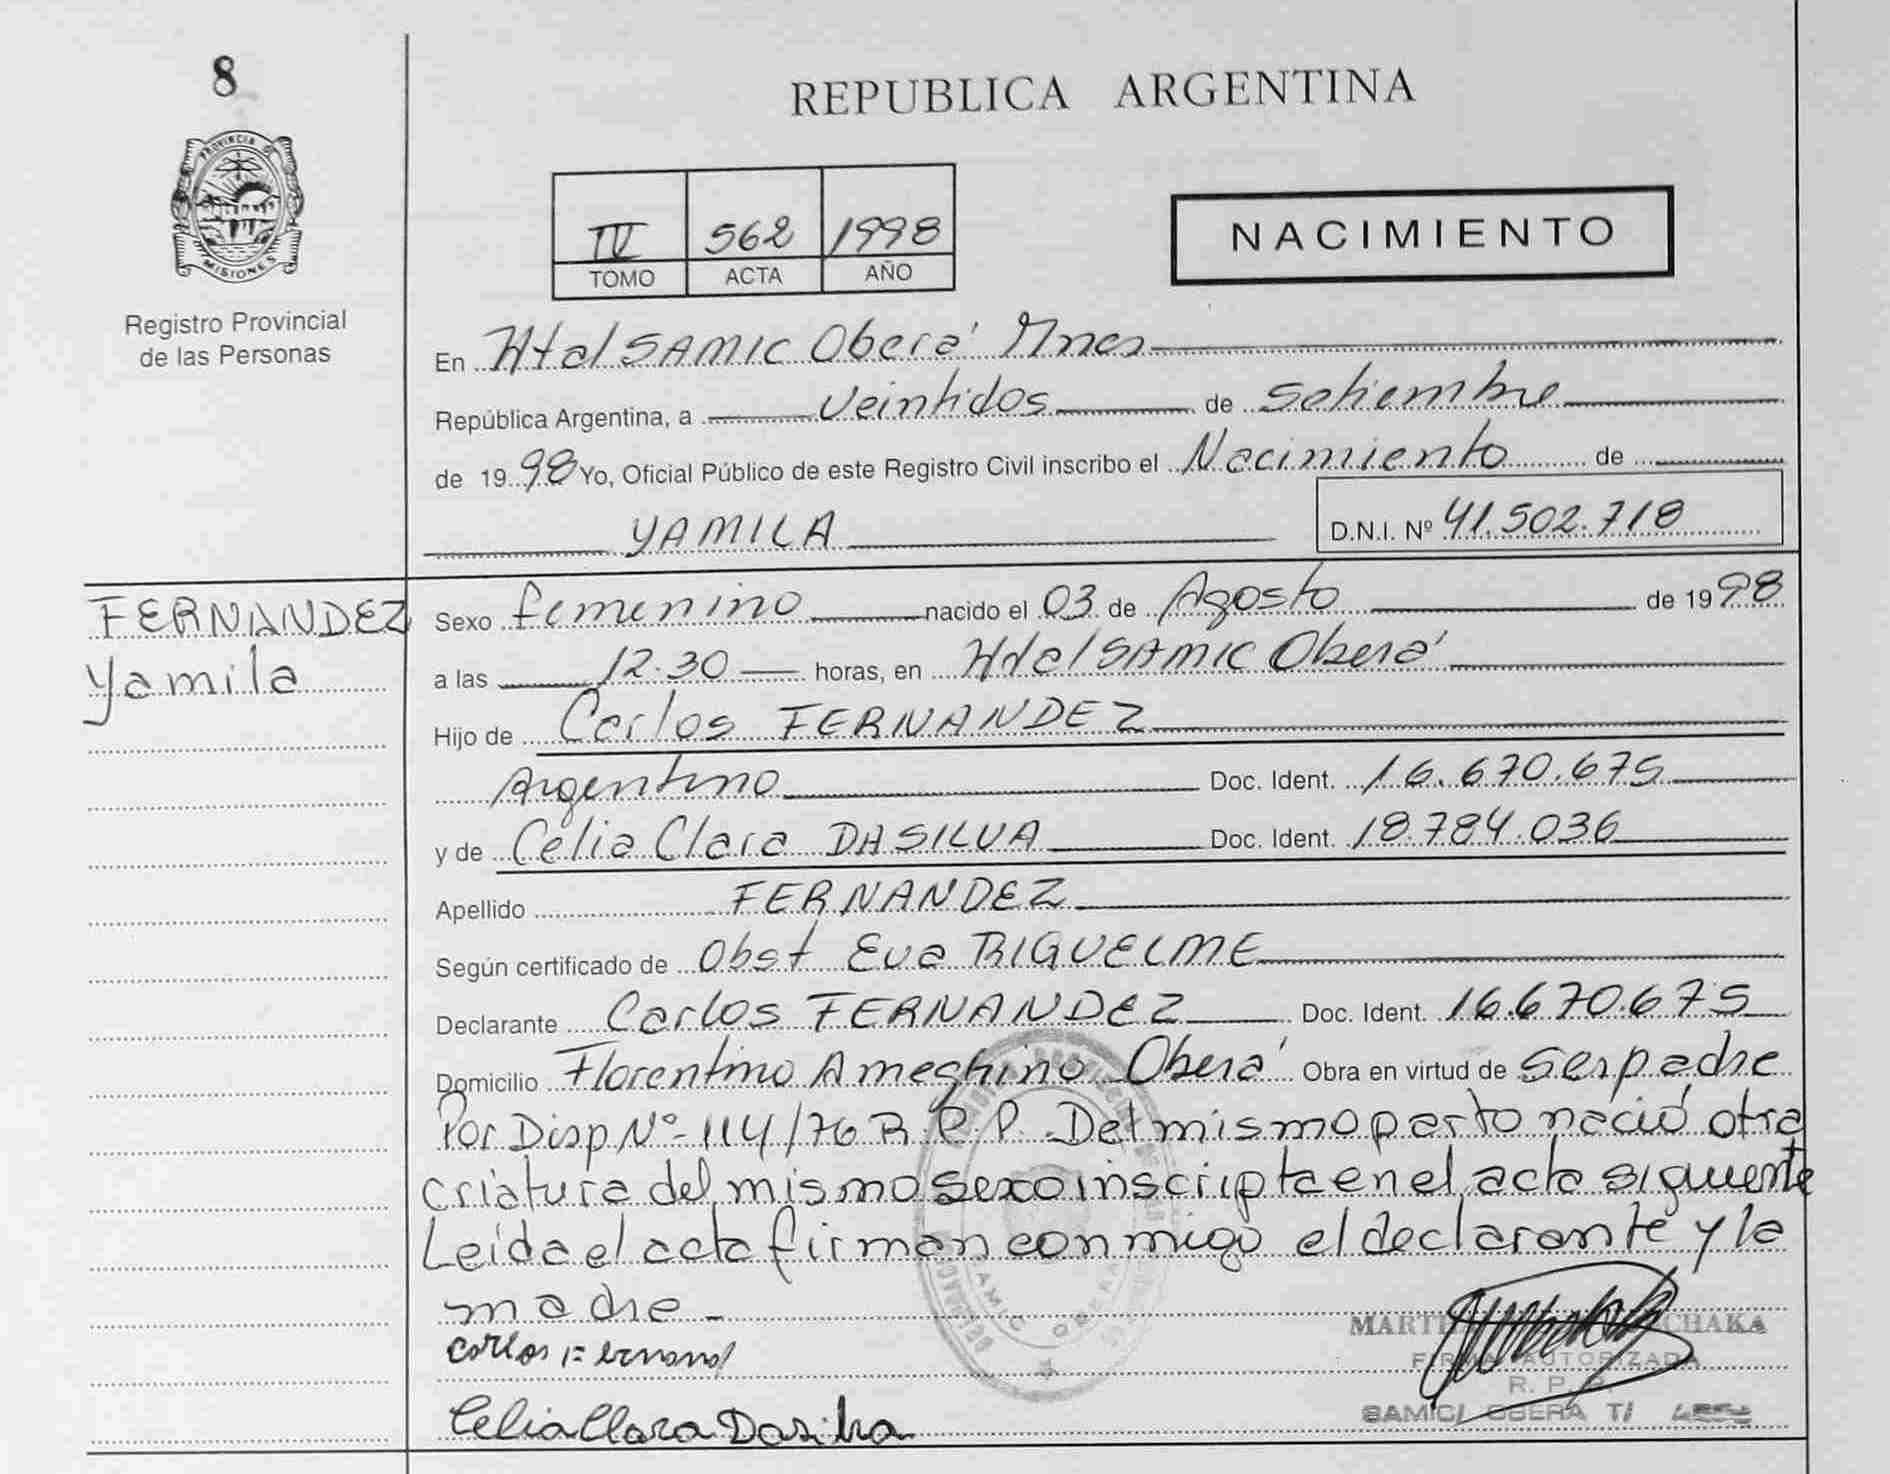 8
REPUBLICA ARGENTINA
PROVINCIA DE
MISIONES
Registro Provincial
de las Personas
IV 562 1998
TOMO ACTA AÑO
NACIMIENTO
En Htal SAMIC Oberá Mnes
República Argentina, a veintidos de setiembre
de 1998 Yo, Oficial Público de este Registro Civil inscribo el Nacimiento de
YAMILA D.N.I. Nº 41.502.718
FERNANDEZ
Yamila
Sexo femenino nacido el 03 de Agosto de 1998
a las 12.30 horas, en Htal SAMIC Oberá
Hijo de Carlos FERNANDEZ
Argentino Doc. Ident. 16.670.675
y de Celia Clara DASILVA Doc. Ident. 18.784.036
Apellido FERNANDEZ
Según certificado de Obst Eva RIQUELME
Declarante Carlos FERNANDEZ Doc. Ident. 16.670.675
Domicilio Florentino Ameghino Oberá Obra en virtud de ser padre
Por Disp Nº 114/76 R.P.P. Del mismo parto nació otra
criatura del mismo sexo inscripta en el acta siguiente
Leída el acta firman conmigo el declarante y la
madre -
Carlos Fernand
Celia Clara Dasilva
FIRMA AUTORIZADA
R. P. P.
SAMIC/ OBERA T/
SAMIC OBERA